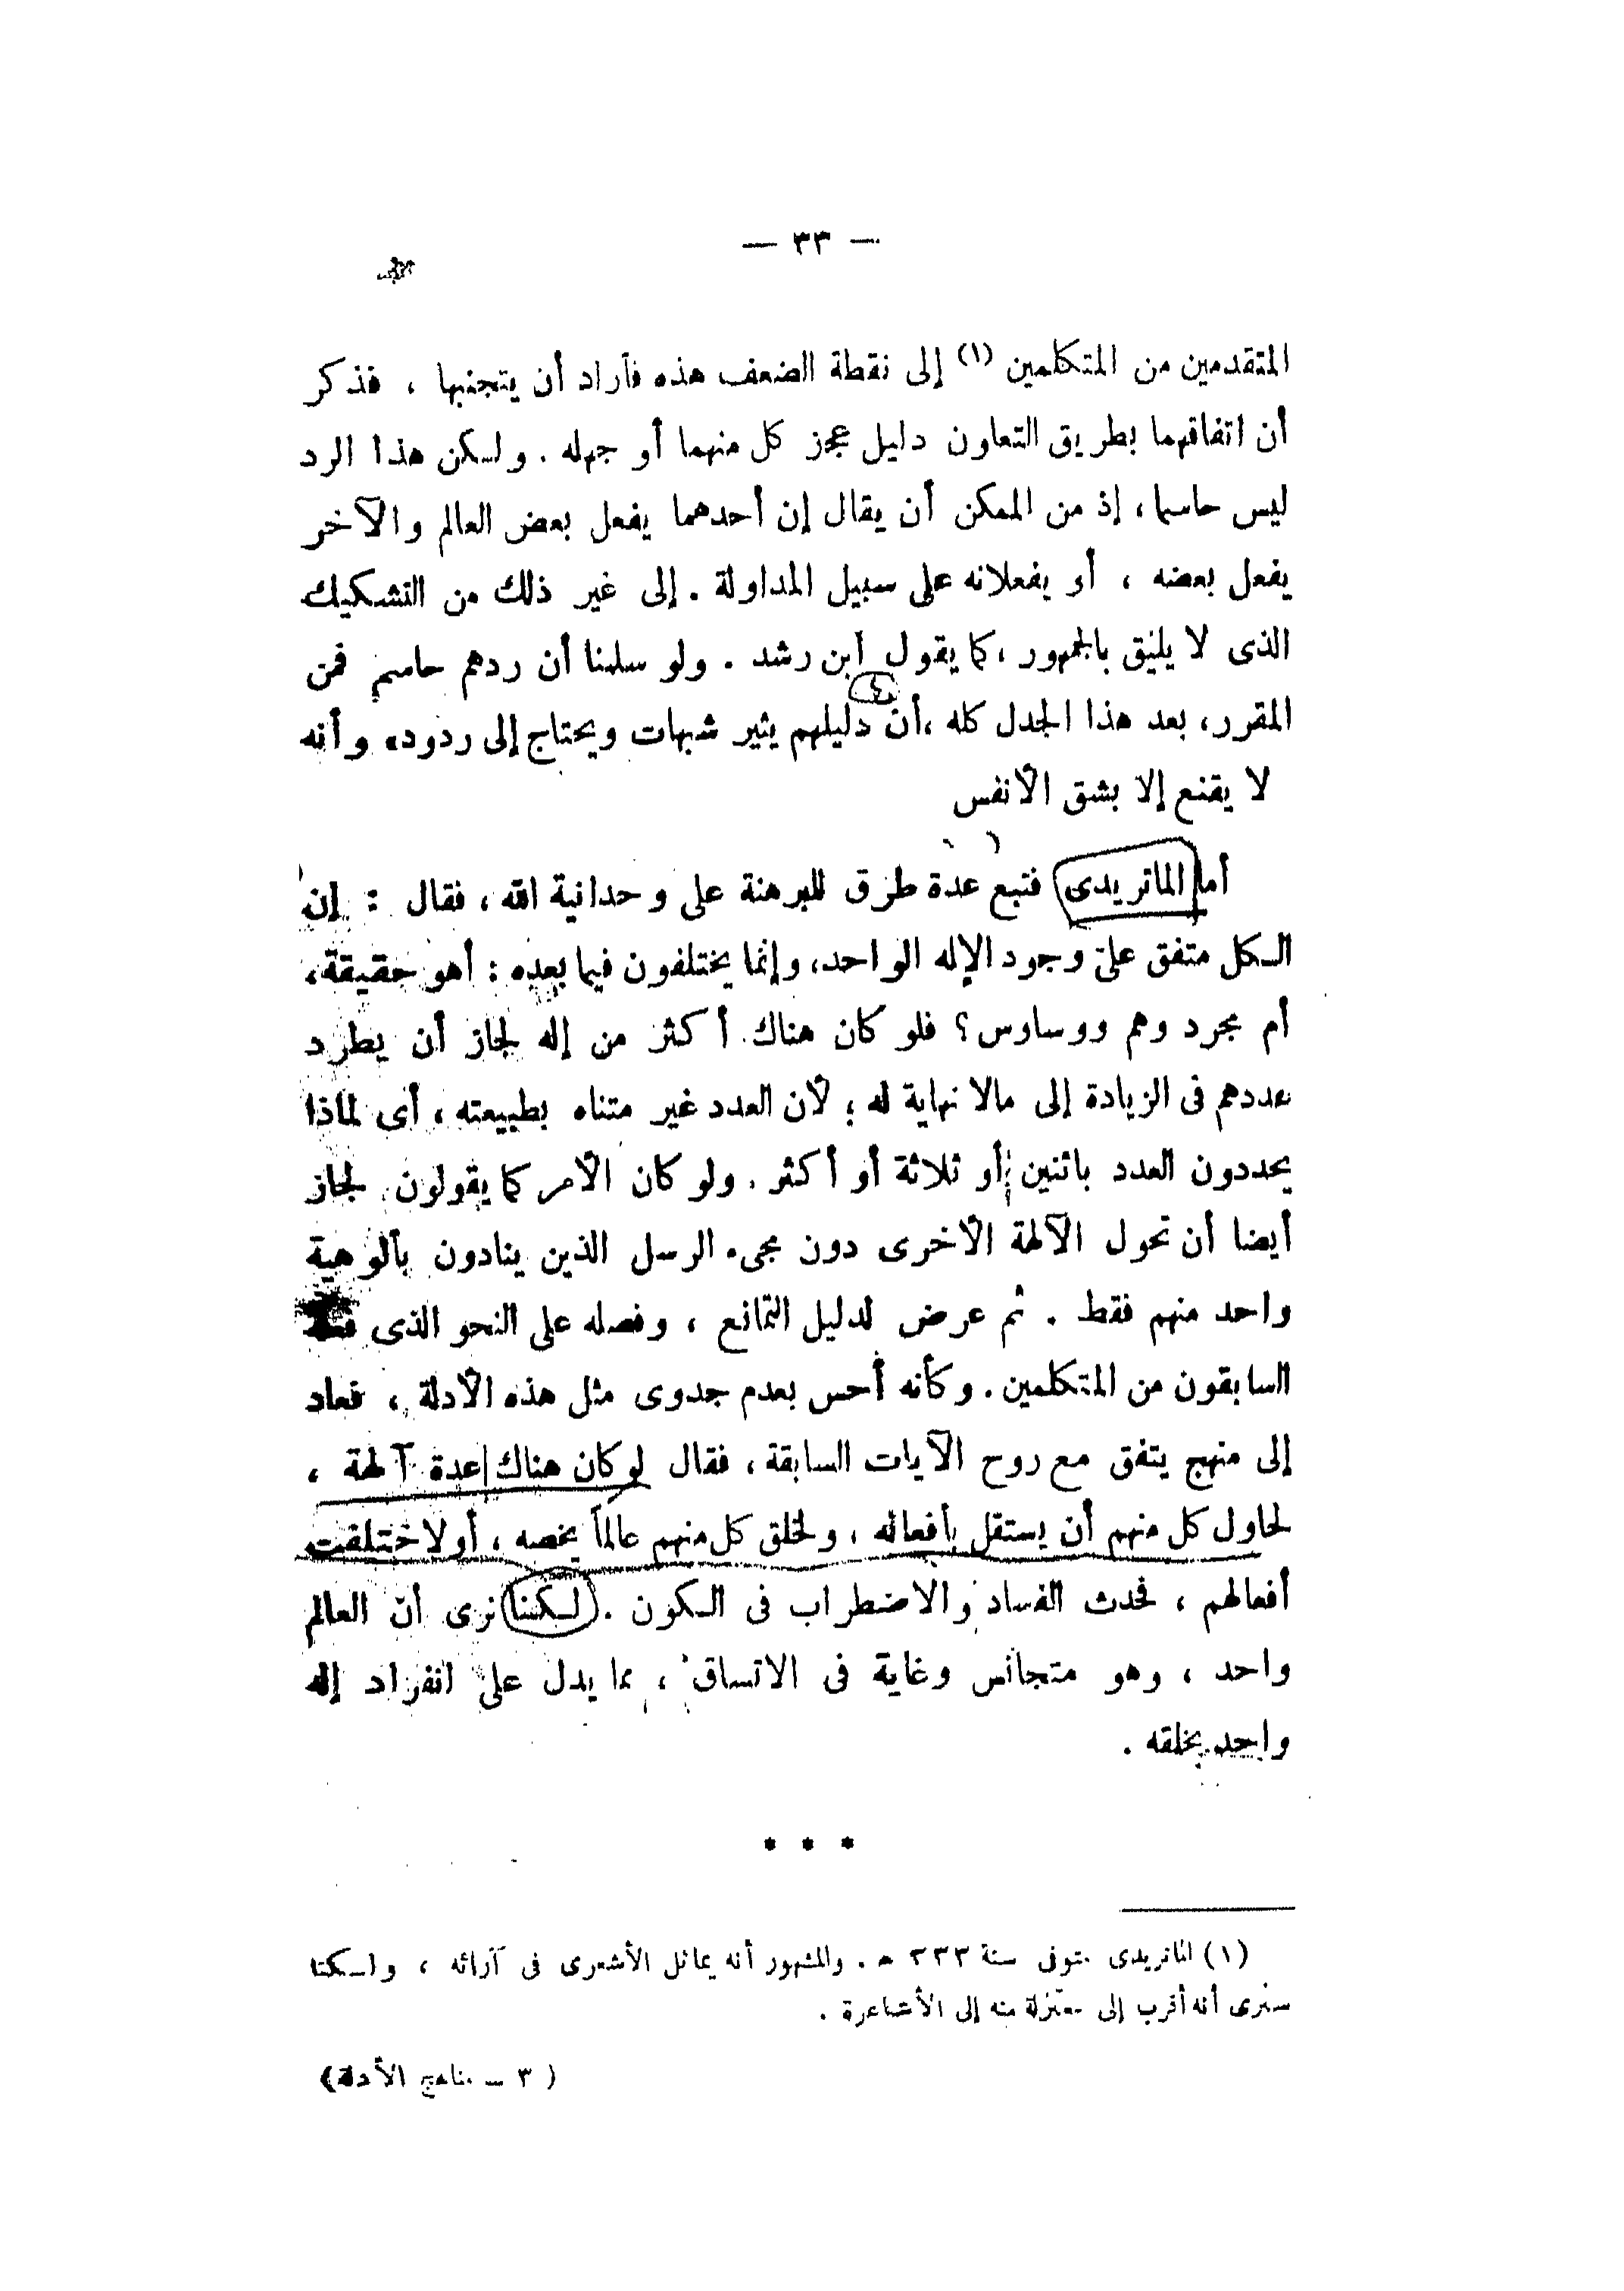 — ٣٣ —
المتقدمين من المتكلمين (١) إلى نقطة الضعف هذه فأراد أن يتجنبها ، فذكر
أن اتفاقهما بطريق التعاون دليل عجز كل منهما أو جهله . ولكن هذا الرد
ليس حاسما، إذ من الممكن أن يقال إن أحدهما يفعل بعض العالم والآخر
يفعل بعضه ، أو يفعلانه على سبيل المداولة . إلى غير ذلك من التشكيك
الذى لا يليق بالجمهور ، كما يقول ابن رشد . ولو سلمنا أن ردهم حاسم فمن
المقرر، بعد هذا الجدل كله ، أن دليلهم يثير شبهات ويحتاج إلى ردود، وأنه
لا يقنع إلا بشق الأنفس
أما الماتريدى فتبع عدة طرق للبرهنة على وحدانية الله ، فقال : إن
الكل متفق على وجود الإله الواحد، وإنما يختلفون فيما بعده : أهو حقيقة،
أم مجرد وهم ووساوس؟ فلو كان هناك أكثر من إله لجاز أن يطرد
عددهم فى الزيادة إلى مالا نهاية له ؛ لأن العدد غير متناه بطبيعته ، أى لماذا
يحددون العدد باثنين أو ثلاثة أو أكثر . ولو كان الأمر كما يقولون لجاز
أيضا أن تحول الآلهة الأخرى دون مجىء الرسل الذين ينادون بألوهية
واحد منهم فقط . ثم عرض لدليل التمانع ، وفصله على النحو الذى
السابقون من المتكلمين . وكأنه أحس بعدم جدوى مثل هذه الأدلة ، فعاد
إلى منهج يتفق مع روح الآيات السابقة ، فقال لو كان هناك عدة آلهة ،
لحاول كل منهم أن يستقل بأفعاله ، ولخلق كل منهم عالماً يخصه ، أو لاختلفت
أفعالهم ، فحدث الفساد والاضطراب فى الكون . لكننا نرى أن العالم
واحد ، وهو متجانس وغاية فى الاتساق ، مما يدل على انفراد إله
واحد بخلقه .
* * *
(١) الماتريدى توفى سنة ٣٣٣ هـ . والمشهور أنه يماثل الأشعرى فى آرائه ، ولكنا
سنرى أنه أقرب إلى معتزلة منه إلى الأشاعرة .
( ٣ – مناهج الأدلة)